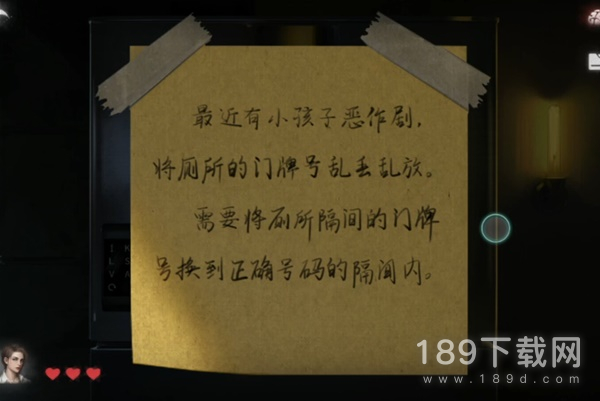 最近有小孩子恶作剧,
将厕所的门牌号乱丢乱放。
需要将厕所隔间的门牌
号换到正确号码的隔间内。
189下载网
www.189d.com